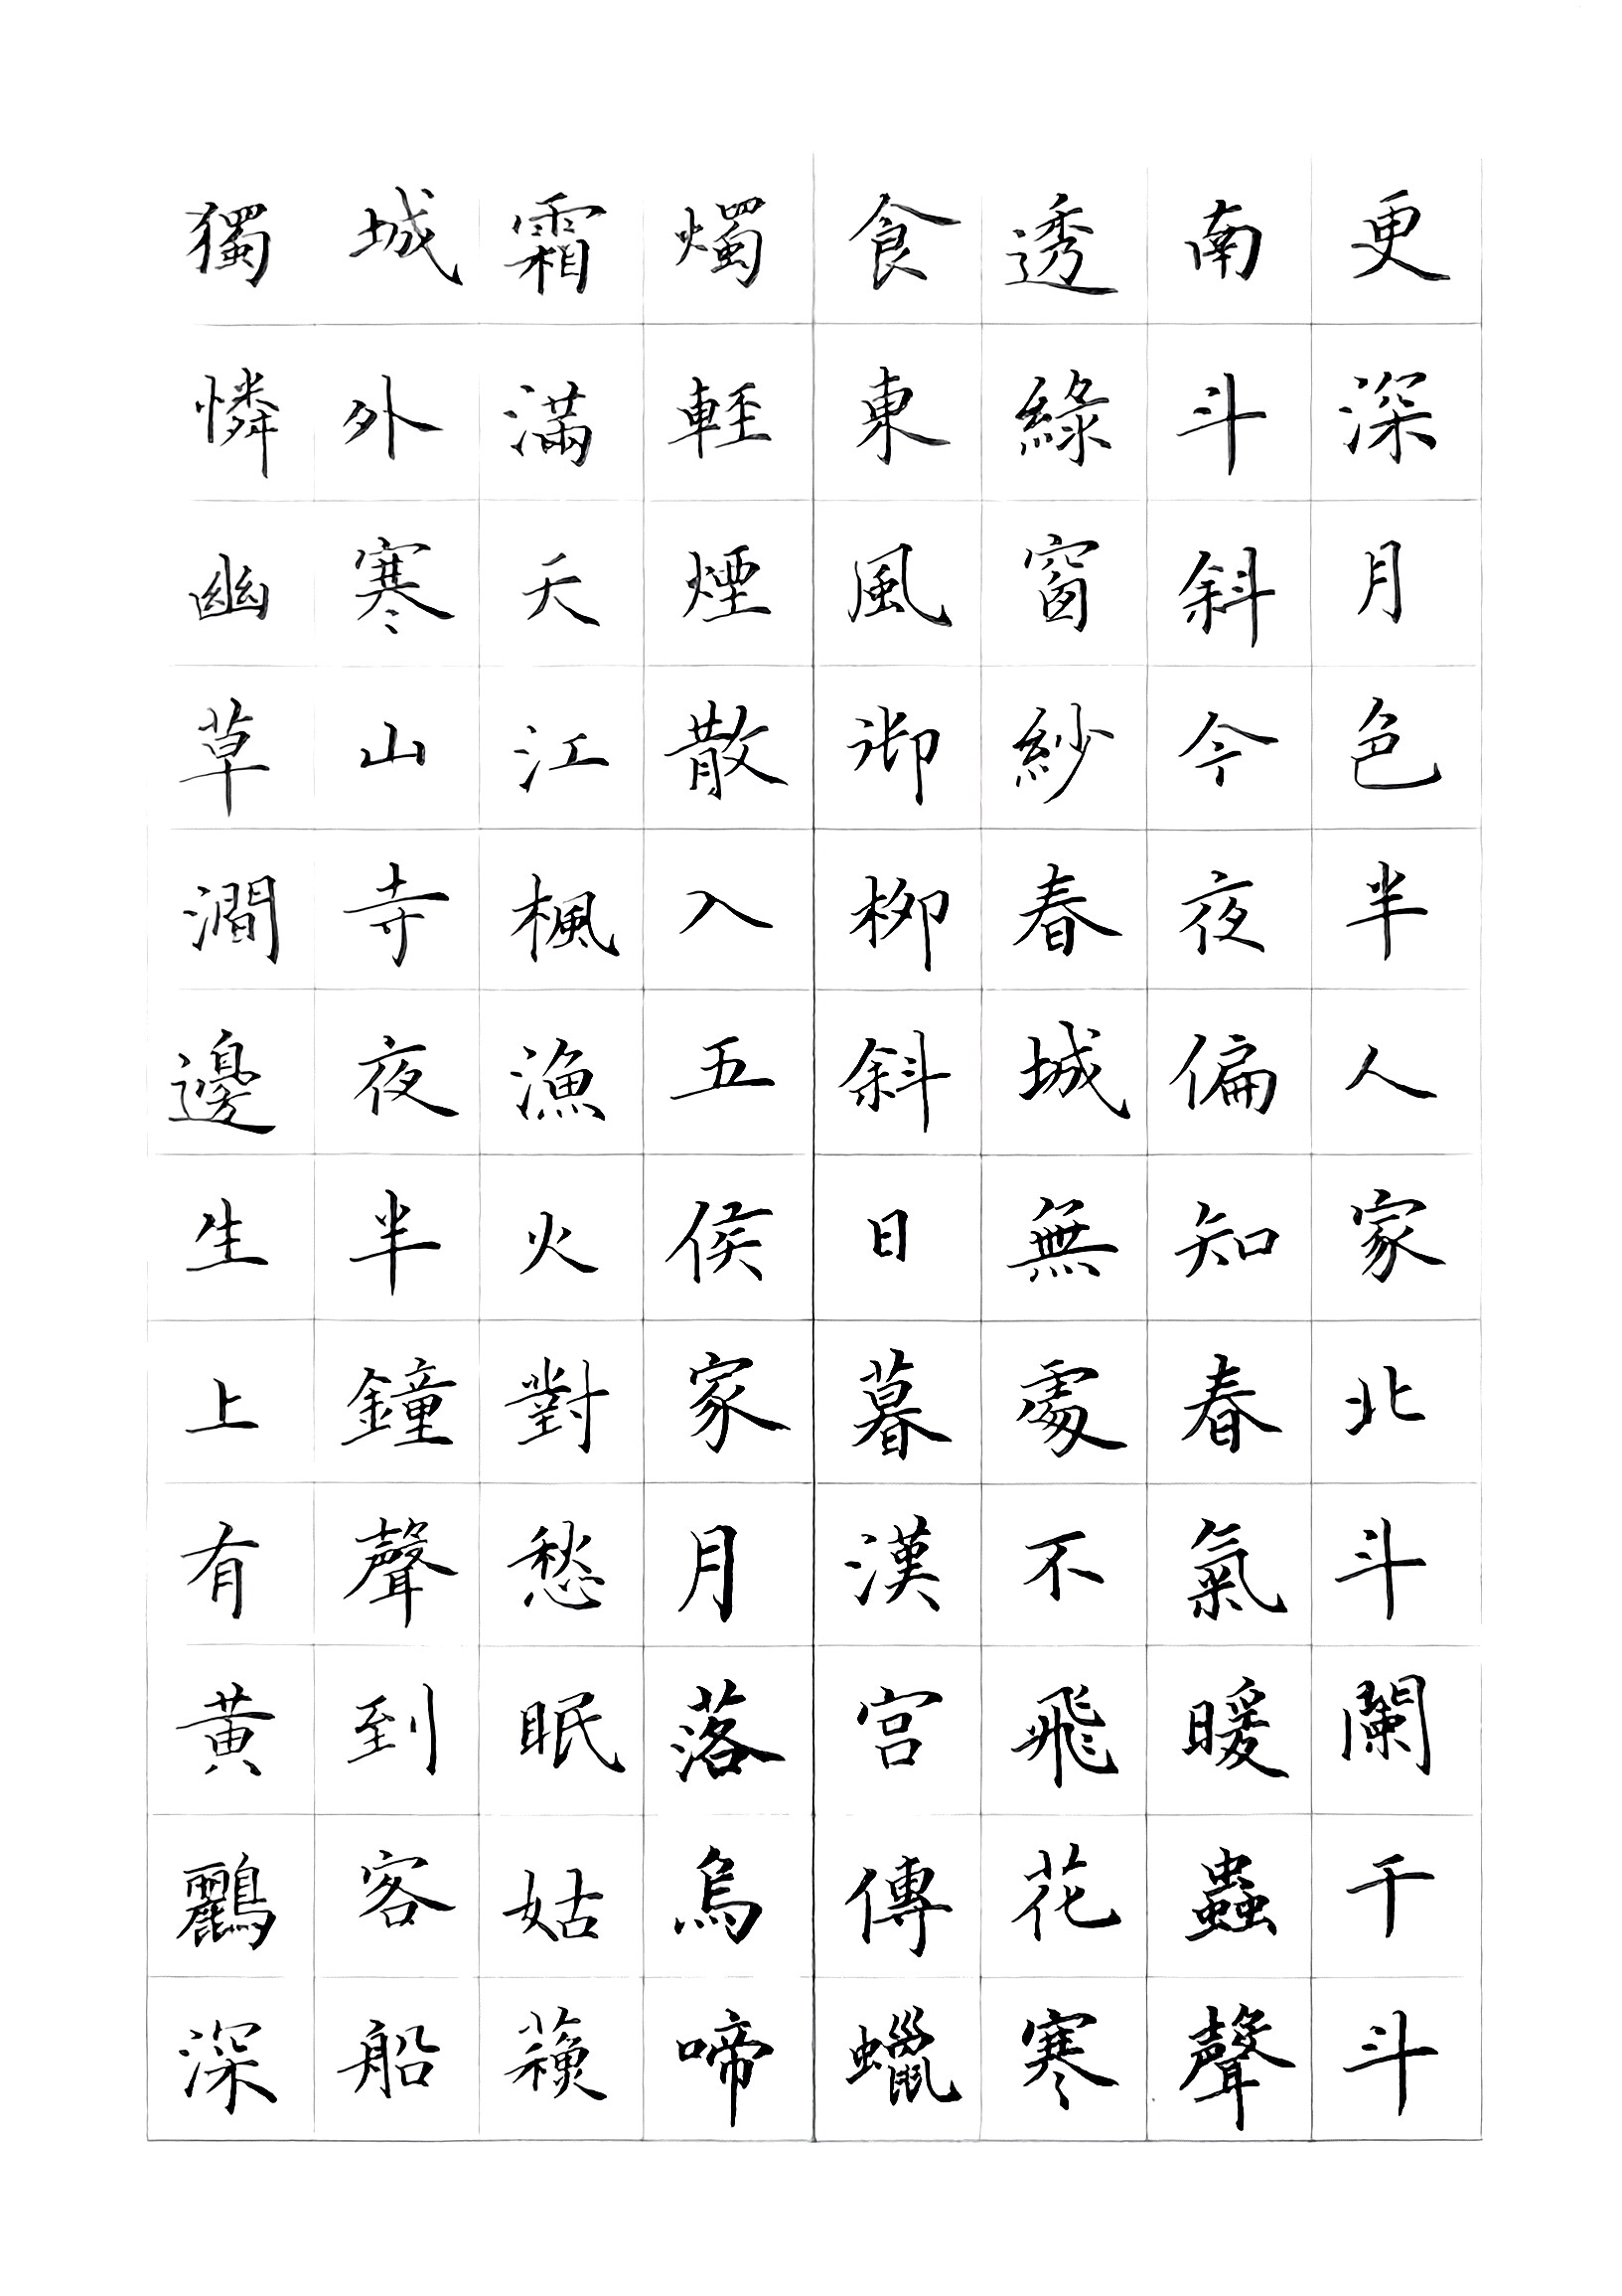 更深月色半人家北斗闌干斗
南斗斜今夜偏知春氣暖蟲聲
透綠窗紗春城無處不飛花寒
食東風御柳斜日暮漢宮傳蠟
燭輕煙散入五侯家月落烏啼
霜滿天江楓漁火對愁眠姑蘓
城外寒山寺夜半鐘聲到客船
獨憐幽草澗邊生上有黃鸝深